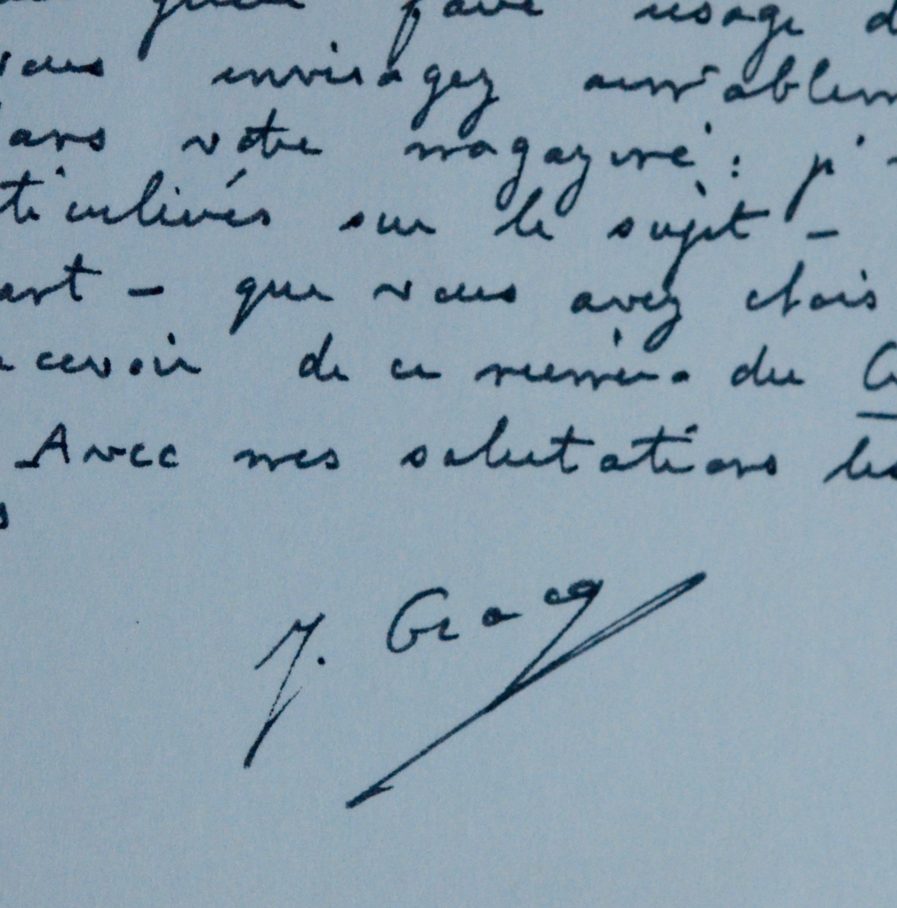 faire usage d
vous envisagez aimablem
dans votre magazine : j'
ticuliers sur le sujet –
ant – que vous avez chois
cevoir de ce numéro du
Avec mes salutations les
s
J. Gracq